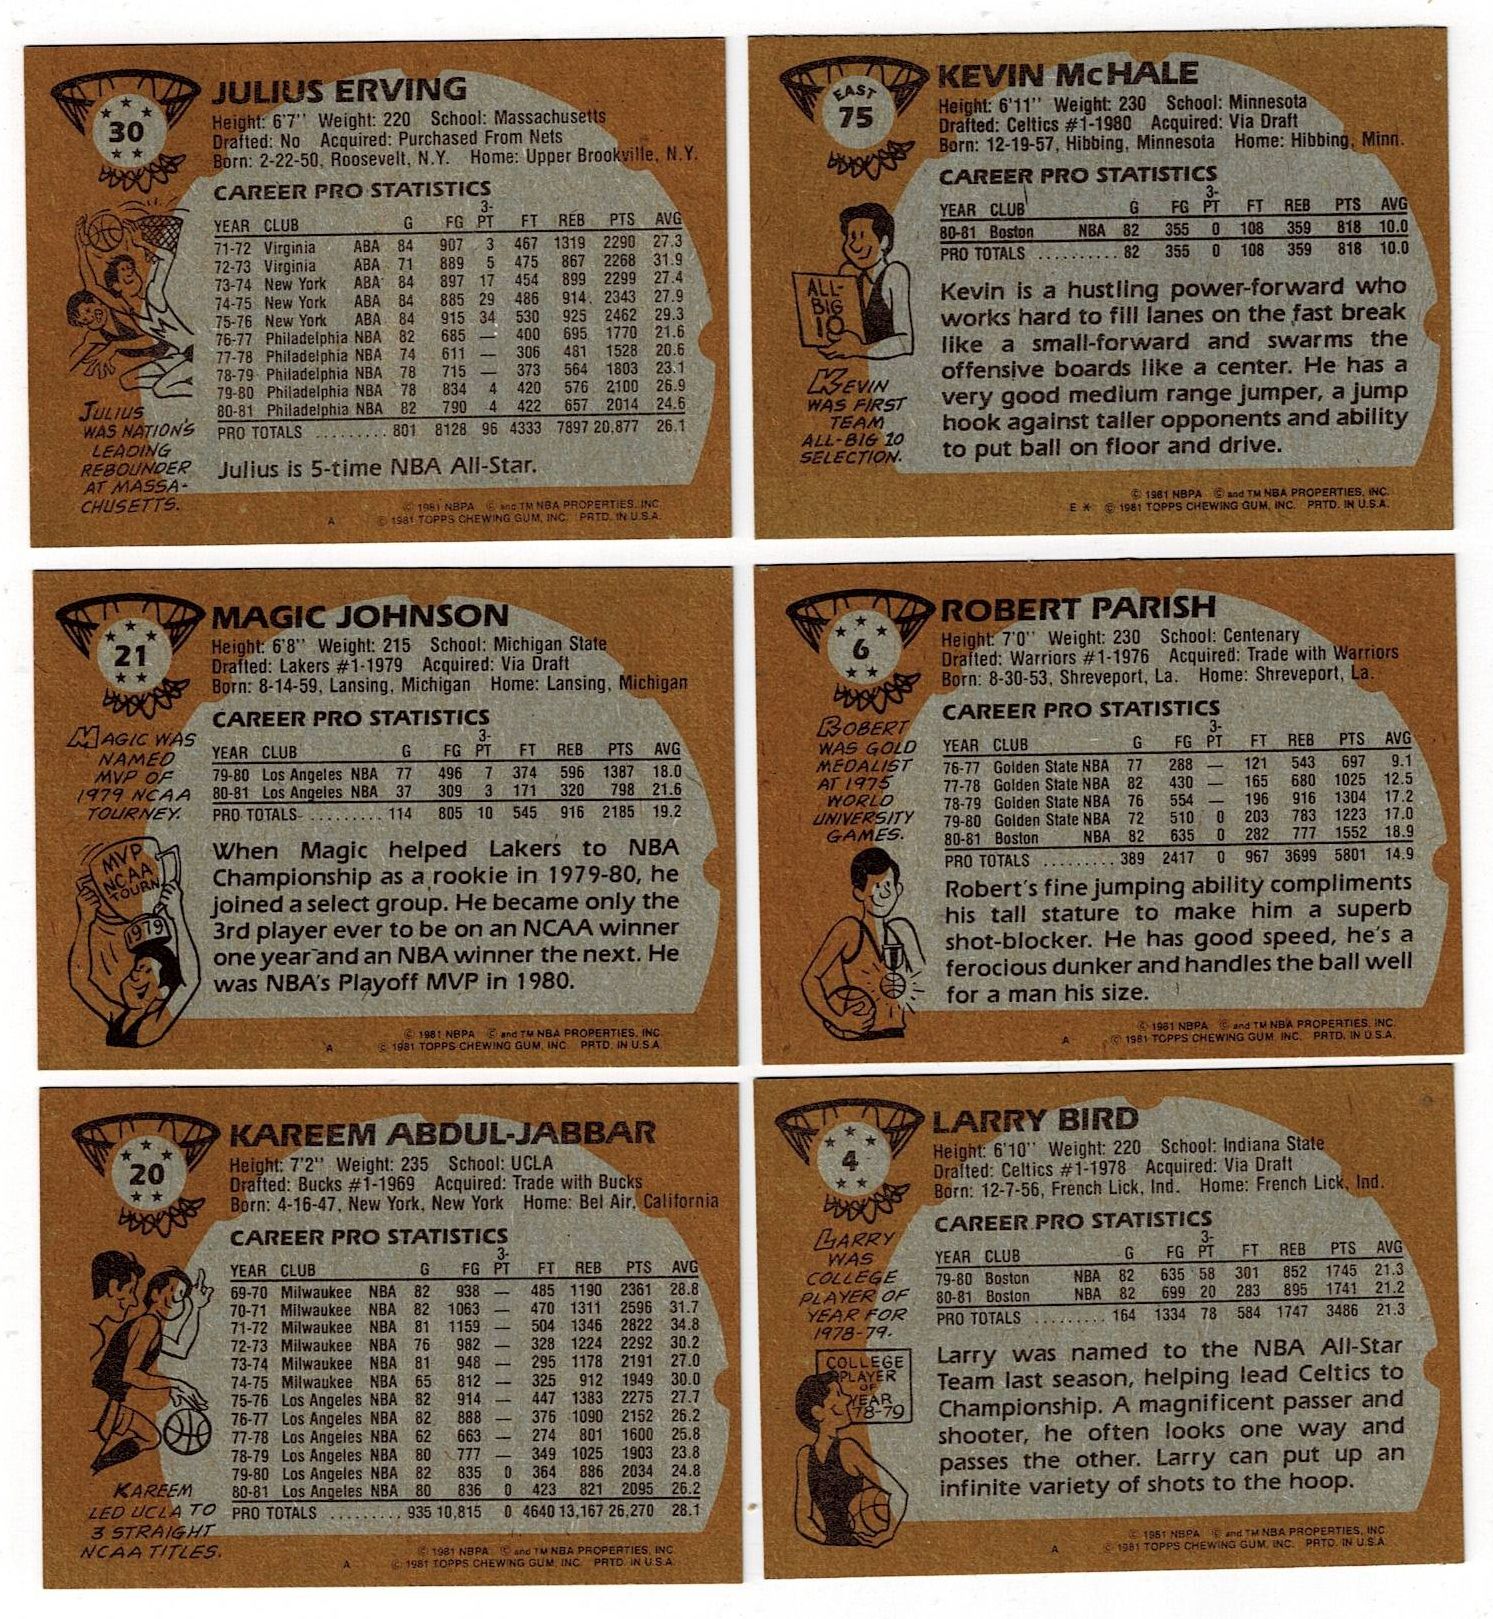 30
JULIUS ERVING
Height: 6'7'' Weight: 220 School: Massachusetts
Drafted: No Acquired: Purchased From Nets
Born: 2-22-50, Roosevelt, N.Y. Home: Upper Brookville, N.Y.
CAREER PRO STATISTICS
YEAR CLUB G FG 3-PT FT REB PTS AVG
71-72 Virginia ABA 84 907 3 467 1319 2290 27.3
72-73 Virginia ABA 71 889 5 475 867 2268 31.9
73-74 New York ABA 84 897 17 454 899 2299 27.4
74-75 New York ABA 84 885 29 486 914 2343 27.9
75-76 New York ABA 84 915 34 530 925 2462 29.3
76-77 Philadelphia NBA 82 685 — 400 695 1770 21.6
77-78 Philadelphia NBA 74 611 — 306 481 1528 20.6
78-79 Philadelphia NBA 78 715 — 373 564 1803 23.1
79-80 Philadelphia NBA 78 834 4 420 576 2100 26.9
80-81 Philadelphia NBA 82 790 4 422 657 2014 24.6
PRO TOTALS ......... 801 8128 96 4333 7897 20,877 26.1
Julius is 5-time NBA All-Star.
JULIUS
WAS NATION'S
LEADING
REBOUNDER
AT MASSA-
CHUSETTS.
© 1981 NBPA © and TM NBA PROPERTIES, INC.
A © 1981 TOPPS CHEWING GUM, INC. PRTD. IN U.S.A.
EAST
75
KEVIN McHALE
Height: 6'11'' Weight: 230 School: Minnesota
Drafted: Celtics #1-1980 Acquired: Via Draft
Born: 12-19-57, Hibbing, Minnesota Home: Hibbing, Minn.
CAREER PRO STATISTICS
YEAR CLUB G FG 3-PT FT REB PTS AVG
80-81 Boston NBA 82 355 0 108 359 818 10.0
PRO TOTALS .......... 82 355 0 108 359 818 10.0
Kevin is a hustling power-forward who
works hard to fill lanes on the fast break
like a small-forward and swarms the
offensive boards like a center. He has a
very good medium range jumper, a jump
hook against taller opponents and ability
to put ball on floor and drive.
ALL-
BIG
10
KEVIN
WAS FIRST
TEAM
ALL-BIG 10
SELECTION.
© 1981 NBPA © and TM NBA PROPERTIES, INC.
E * © 1981 TOPPS CHEWING GUM, INC. PRTD. IN U.S.A.
21
MAGIC JOHNSON
Height: 6'8'' Weight: 215 School: Michigan State
Drafted: Lakers #1-1979 Acquired: Via Draft
Born: 8-14-59, Lansing, Michigan Home: Lansing, Michigan
CAREER PRO STATISTICS
YEAR CLUB G FG 3-PT FT REB PTS AVG
79-80 Los Angeles NBA 77 496 7 374 596 1387 18.0
80-81 Los Angeles NBA 37 309 3 171 320 798 21.6
PRO TOTALS .......... 114 805 10 545 916 2185 19.2
When Magic helped Lakers to NBA
Championship as a rookie in 1979-80, he
joined a select group. He became only the
3rd player ever to be on an NCAA winner
one year and an NBA winner the next. He
was NBA's Playoff MVP in 1980.
MAGIC WAS
NAMED
MVP OF
1979 NCAA
TOURNEY.
MVP
NCAA
TOURN
1979
© 1981 NBPA © and TM NBA PROPERTIES, INC.
A © 1981 TOPPS CHEWING GUM, INC. PRTD. IN U.S.A.
6
ROBERT PARISH
Height: 7'0'' Weight: 230 School: Centenary
Drafted: Warriors #1-1976 Acquired: Trade with Warriors
Born: 8-30-53, Shreveport, La. Home: Shreveport, La.
CAREER PRO STATISTICS
YEAR CLUB G FG 3-PT FT REB PTS AVG
76-77 Golden State NBA 77 288 — 121 543 697 9.1
77-78 Golden State NBA 82 430 — 165 680 1025 12.5
78-79 Golden State NBA 76 554 — 196 916 1304 17.2
79-80 Golden State NBA 72 510 0 203 783 1223 17.0
80-81 Boston NBA 82 635 0 282 777 1552 18.9
PRO TOTALS ......... 389 2417 0 967 3699 5801 14.9
Robert's fine jumping ability compliments
his tall stature to make him a superb
shot-blocker. He has good speed, he's a
ferocious dunker and handles the ball well
for a man his size.
ROBERT
WAS GOLD
MEDALIST
AT 1975
WORLD
UNIVERSITY
GAMES.
© 1981 NBPA © and TM NBA PROPERTIES, INC.
A © 1981 TOPPS CHEWING GUM, INC. PRTD. IN U.S.A.
20
KAREEM ABDUL-JABBAR
Height: 7'2'' Weight: 235 School: UCLA
Drafted: Bucks #1-1969 Acquired: Trade with Bucks
Born: 4-16-47, New York, New York Home: Bel Air, California
CAREER PRO STATISTICS
YEAR CLUB G FG 3-PT FT REB PTS AVG
69-70 Milwaukee NBA 82 938 — 485 1190 2361 28.8
70-71 Milwaukee NBA 82 1063 — 470 1311 2596 31.7
71-72 Milwaukee NBA 81 1159 — 504 1346 2822 34.8
72-73 Milwaukee NBA 76 982 — 328 1224 2292 30.2
73-74 Milwaukee NBA 81 948 — 295 1178 2191 27.0
74-75 Milwaukee NBA 65 812 — 325 912 1949 30.0
75-76 Los Angeles NBA 82 914 — 447 1383 2275 27.7
76-77 Los Angeles NBA 82 888 — 376 1090 2152 26.2
77-78 Los Angeles NBA 62 663 — 274 801 1600 25.8
78-79 Los Angeles NBA 80 777 — 349 1025 1903 23.8
79-80 Los Angeles NBA 82 835 0 364 886 2034 24.8
80-81 Los Angeles NBA 80 836 0 423 821 2095 26.2
PRO TOTALS ......... 935 10,815 0 4640 13,167 26,270 28.1
KAREEM
LED UCLA TO
3 STRAIGHT
NCAA TITLES.
© 1981 NBPA © and TM NBA PROPERTIES, INC.
A © 1981 TOPPS CHEWING GUM, INC. PRTD. IN U.S.A.
4
LARRY BIRD
Height: 6'10'' Weight: 220 School: Indiana State
Drafted: Celtics #1-1978 Acquired: Via Draft
Born: 12-7-56, French Lick, Ind. Home: French Lick, Ind.
CAREER PRO STATISTICS
YEAR CLUB G FG 3-PT FT REB PTS AVG
79-80 Boston NBA 82 635 58 301 852 1745 21.3
80-81 Boston NBA 82 699 20 283 895 1741 21.2
PRO TOTALS ......... 164 1334 78 584 1747 3486 21.3
Larry was named to the NBA All-Star
Team last season, helping lead Celtics to
Championship. A magnificent passer and
shooter, he often looks one way and
passes the other. Larry can put up an
infinite variety of shots to the hoop.
LARRY
WAS
COLLEGE
PLAYER OF
YEAR FOR
1978-79.
COLLEGE
PLAYER
OF
YEAR
78-79
© 1981 NBPA © and TM NBA PROPERTIES, INC.
A © 1981 TOPPS CHEWING GUM, INC. PRTD. IN U.S.A.